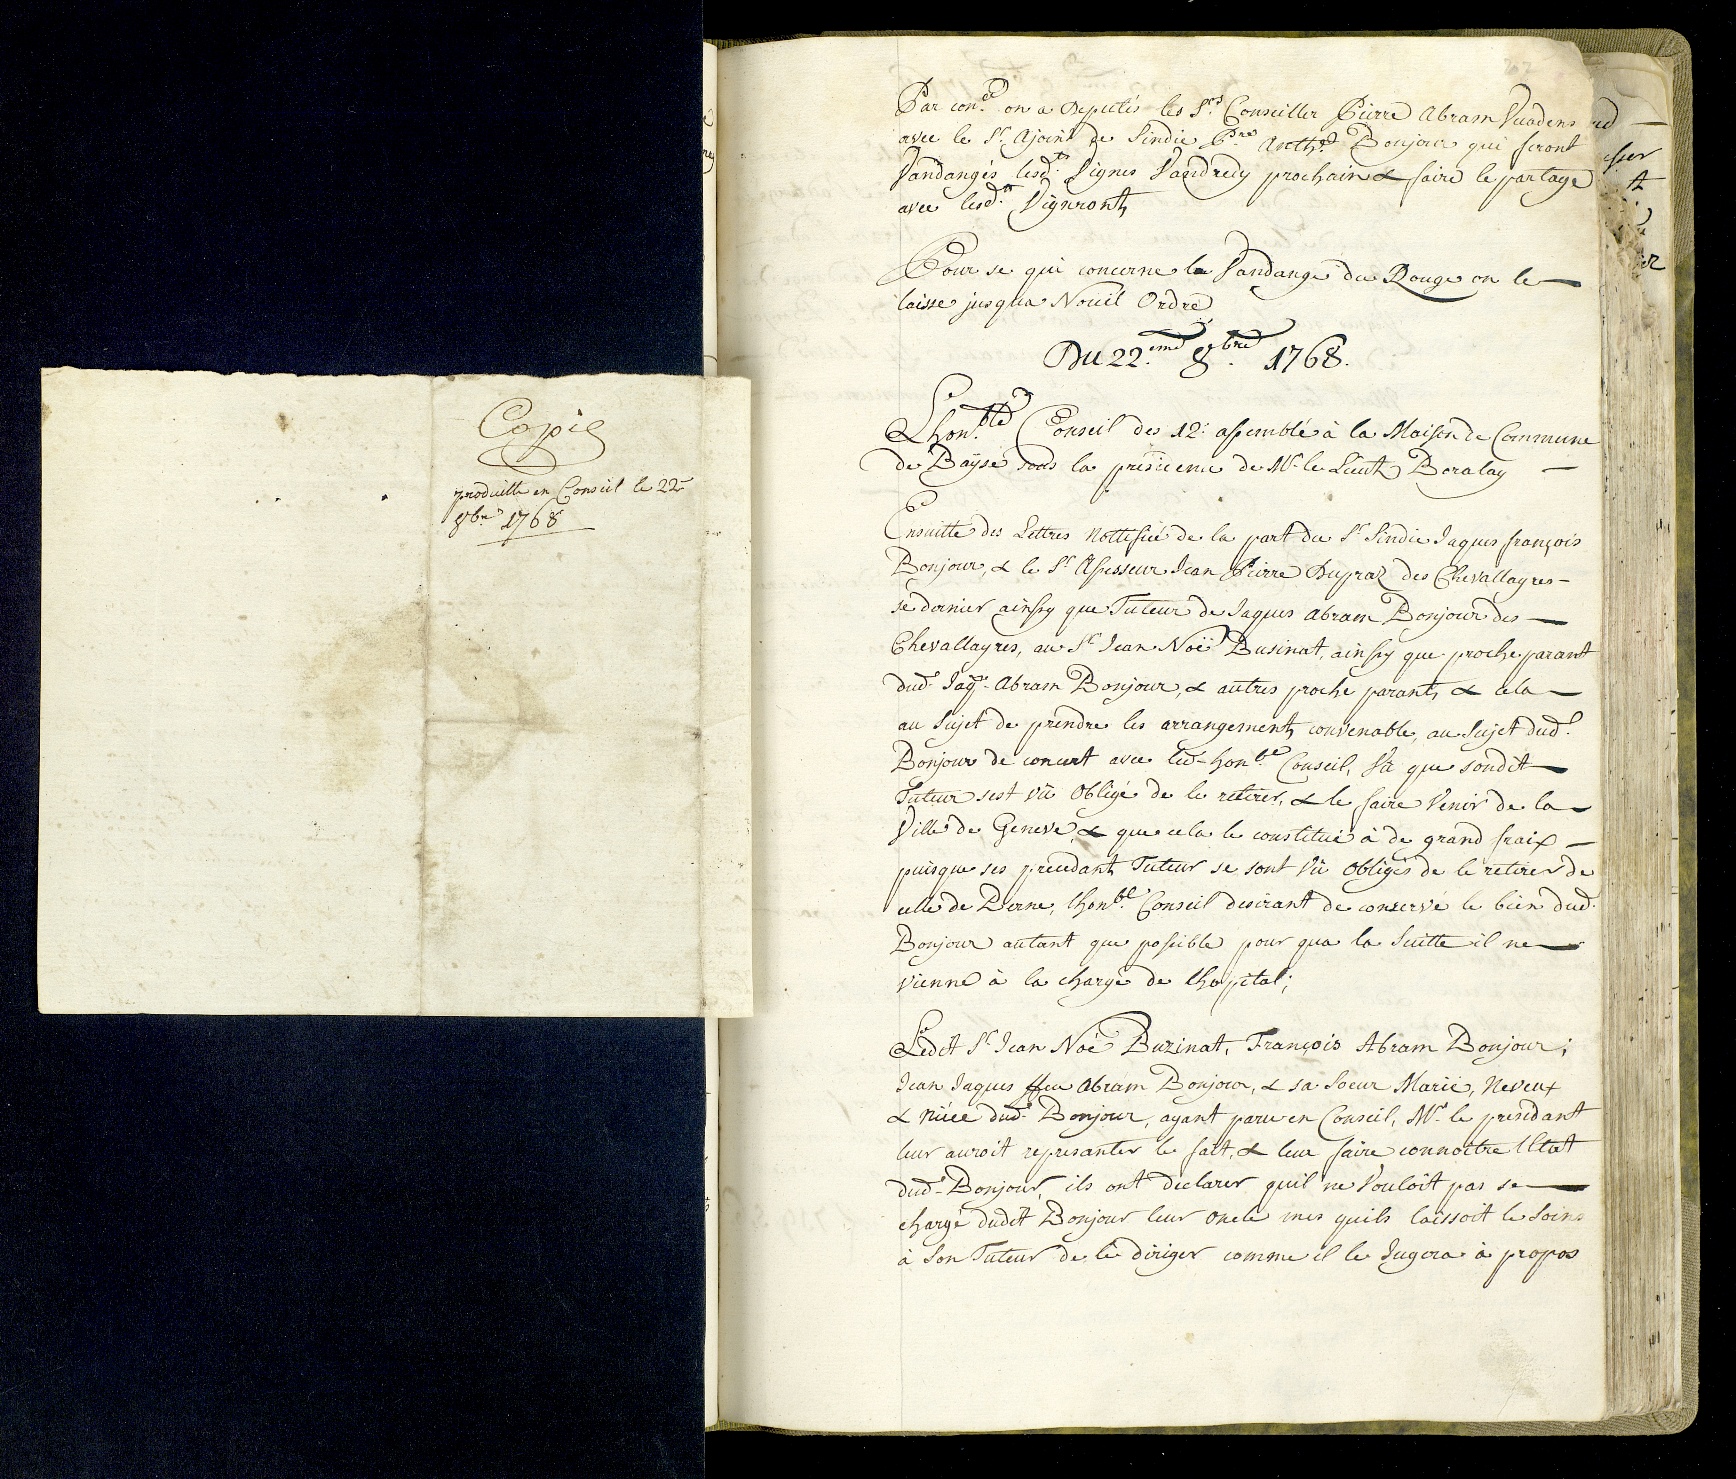 Copie
produitte en Conseil le 22e
8bre 1768
Par conce on a Deputés les Srs Conseiller Pierre Abram Vuadens
avec le Sr Ajoint de Sindic Bonjour qui feront
Vandangés lesdtes Vignes Vandredy prochain & faire le partage
avec lesdts Vigneronts
Pour se qui concerne la Vandange du Rouge on le
laisse jusqua Nouil Ordre
Du 22.eme 8.bre 1768.
L'hon.ble Conseil des 12. assemblé à la Maison de Commune
de Bayse sous la presidence de Mr le Lieut
Ensuitte des Lettres nottifiée de la part du Sr Sindic Jaques françois
Bonjour, & le Sr Assesseur Jean Pierre Dupraz des Chevallayres
se dernier ainsy que Tuteur de Jaques Abram Bonjour des
Chevallayres, au Sr Jean Noë Businat, ainsy que proche parant
dudt Jaqs Abram Bonjour, & autres proche parants & cela
au Sujet de prendre les arrangements convenable, au Sujet dudt
Bonjour de concert avec ledt honble Conseil, Vû que sondit
Tuteur sest vû Obligé de le retirer, & le faire Venir de la
Ville de Geneve, & que cela le constitue à de grand fraix
puisque ses precedants Tuteur se sont vû Obligés de le retirer de
celle de Berne, lhonble Conseil desirant de conservé le bien dudt
Bonjour autant que possible pour qua la Suitte il ne
vienne à la charge de lhopital;
Ledit Sr Jean Noé Buzinat, François Abram Bonjour;
Jean Jaques ffeu Abram Bonjour, & sa Soeur Marie, Neveux
& niéce dudt Bonjour, ayant paru en Conseil, Mr le presidant
leur auroit representer le fait, & leur faire connoitre l'Etat
dudt Bonjour, ils ont declarer quil ne Vouloit pas se
chargé dudit Bonjour leur oncle mes quils laissoit le Soins
à Son Tuteur de le diriger comme il le Jugera à propos